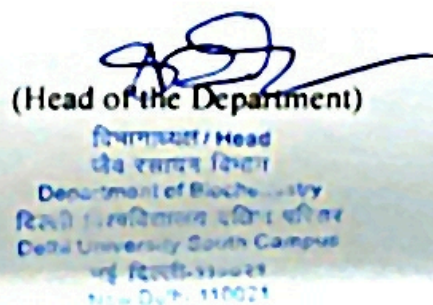 (Head of the Department)
विभागाध्यक्ष / Head
जैव रसायन विभाग
Department of Biochemistry
दिल्ली विश्वविद्यालय दक्षिण परिसर
Delhi University South Campus
नई दिल्ली-110021
New Delhi 110021